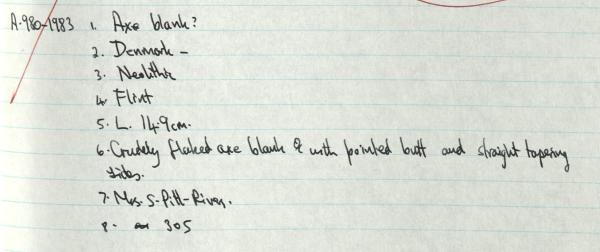 A.980-1983 1. Axe blank?
2. Denmark -
3. Neolithic
4. Flint
5. L. 14.9cm.
6. Crudely flaked axe blank & with pointed butt and straight tapering
sides.
7. Mrs. S. Pitt-Rivers.
8. 305